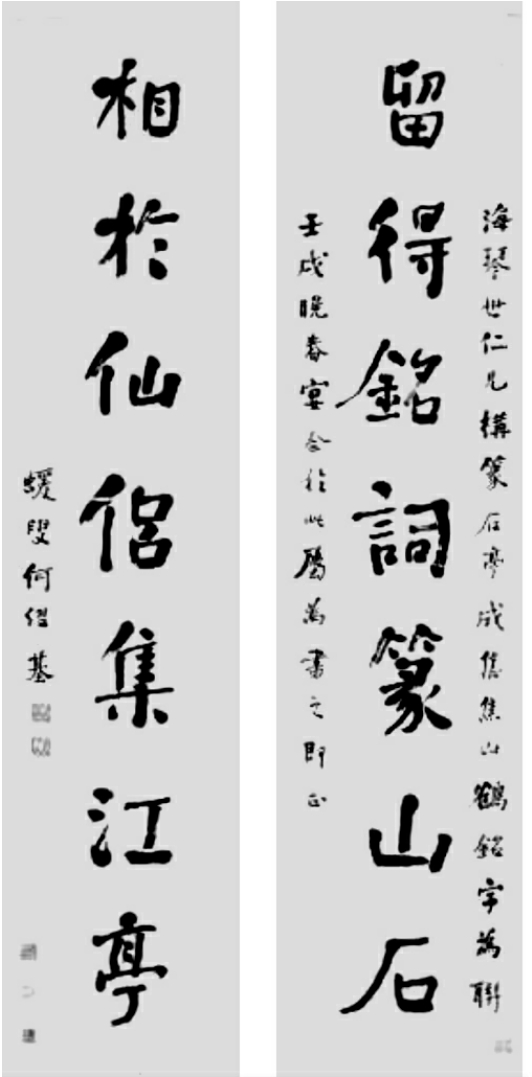 海琴世仁兄構篆石亭成集焦山鶴銘字為聯
留得銘詞篆山石
壬戌晚春宴合於此屬為書之即正
相於仙侶集江亭
蝯叟何紹基